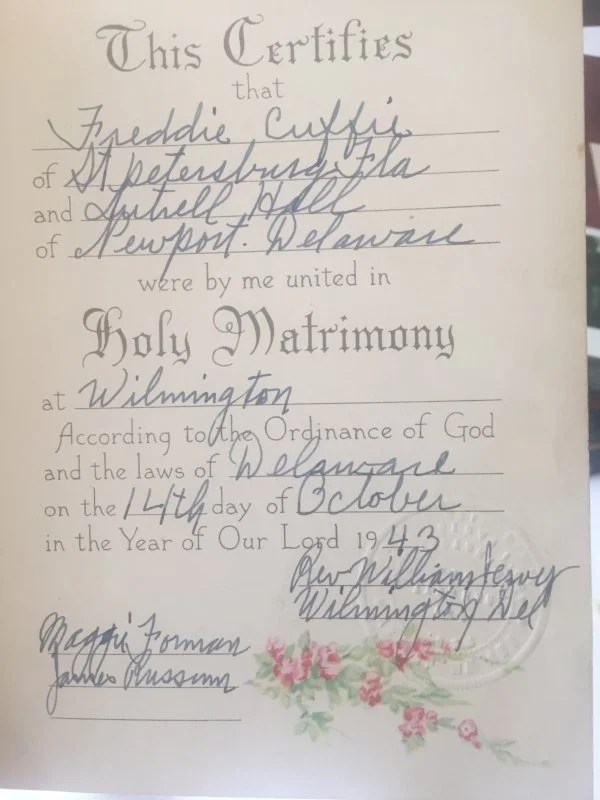 This Certifies
that
Freddie Cuffie
of St petersburg. Fla
and Lutrell Hall
of Newport. Delaware
were by me united in
Holy Matrimony
at Wilmington
According to the Ordinance of God
and the laws of Delaware
on the 14th day of October
in the Year of Our Lord 1943
Rev William
Wilmington Del
Maggie Forman
James Russum